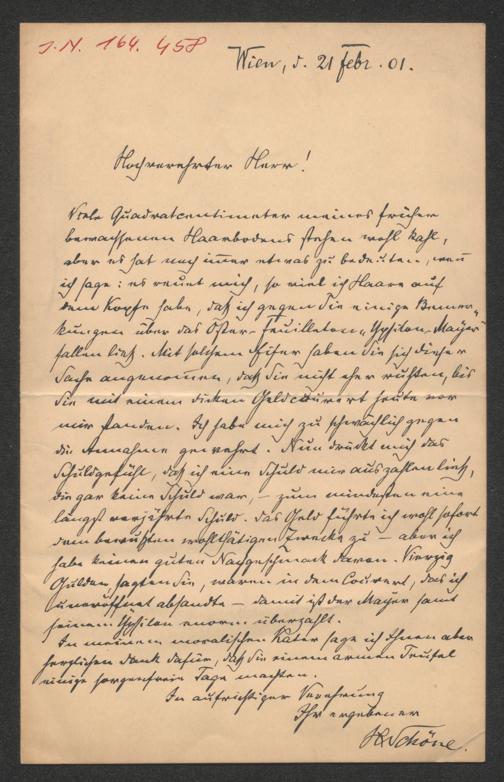 J.N. 164.458
Wien, d. 21 Febr. 01.
Hochverehrter Herr!
Viele Quadratcentimeter meines früher
bewachsenen Haarbodens stehen wohl kahl,
aber es hat noch immer etwas zu bedeuten, wenn
ich sage: es reuet mich, so viel ich Haare auf
dem Kopfe habe, daß ich gegen Sie einige Bemer-
kungen über das Oster-Feuilleton „Ypsilon-Mayer"
fallen ließ. Mit solchem Eifer haben Sie sich dieser
Sache angenommen, daß Sie nicht eher ruhten, bis
Sie mit einem dicken Geldcouvert heute vor
mir standen. Ich habe mich zu schwächlich gegen
die Annahme gewehrt. Nun drückt mich das
Schuldgefühl, daß ich eine Schuld mir auszahlen ließ,
die gar keine Schuld war, – zum mindesten eine
längst verjährte Schuld. Das Geld führte ich wohl sofort
dem bewußten wohlthätigen Zwecke zu – aber ich
habe keinen guten Nachgeschmack davon. Vierzig
Gulden sagten Sie, waren in dem Couvert, das ich
uneröffnet absandte – damit ist der Mayer samt
seinem Ypsilon enorm überzahlt.
In meinem moralischen Kater sage ich Ihnen aber
herzlichen Dank dafür, daß Sie einem armen Teufel
einige sorgenfreie Tage machten.
In aufrichtiger Verehrung
Ihr ergebener
HSchöne.